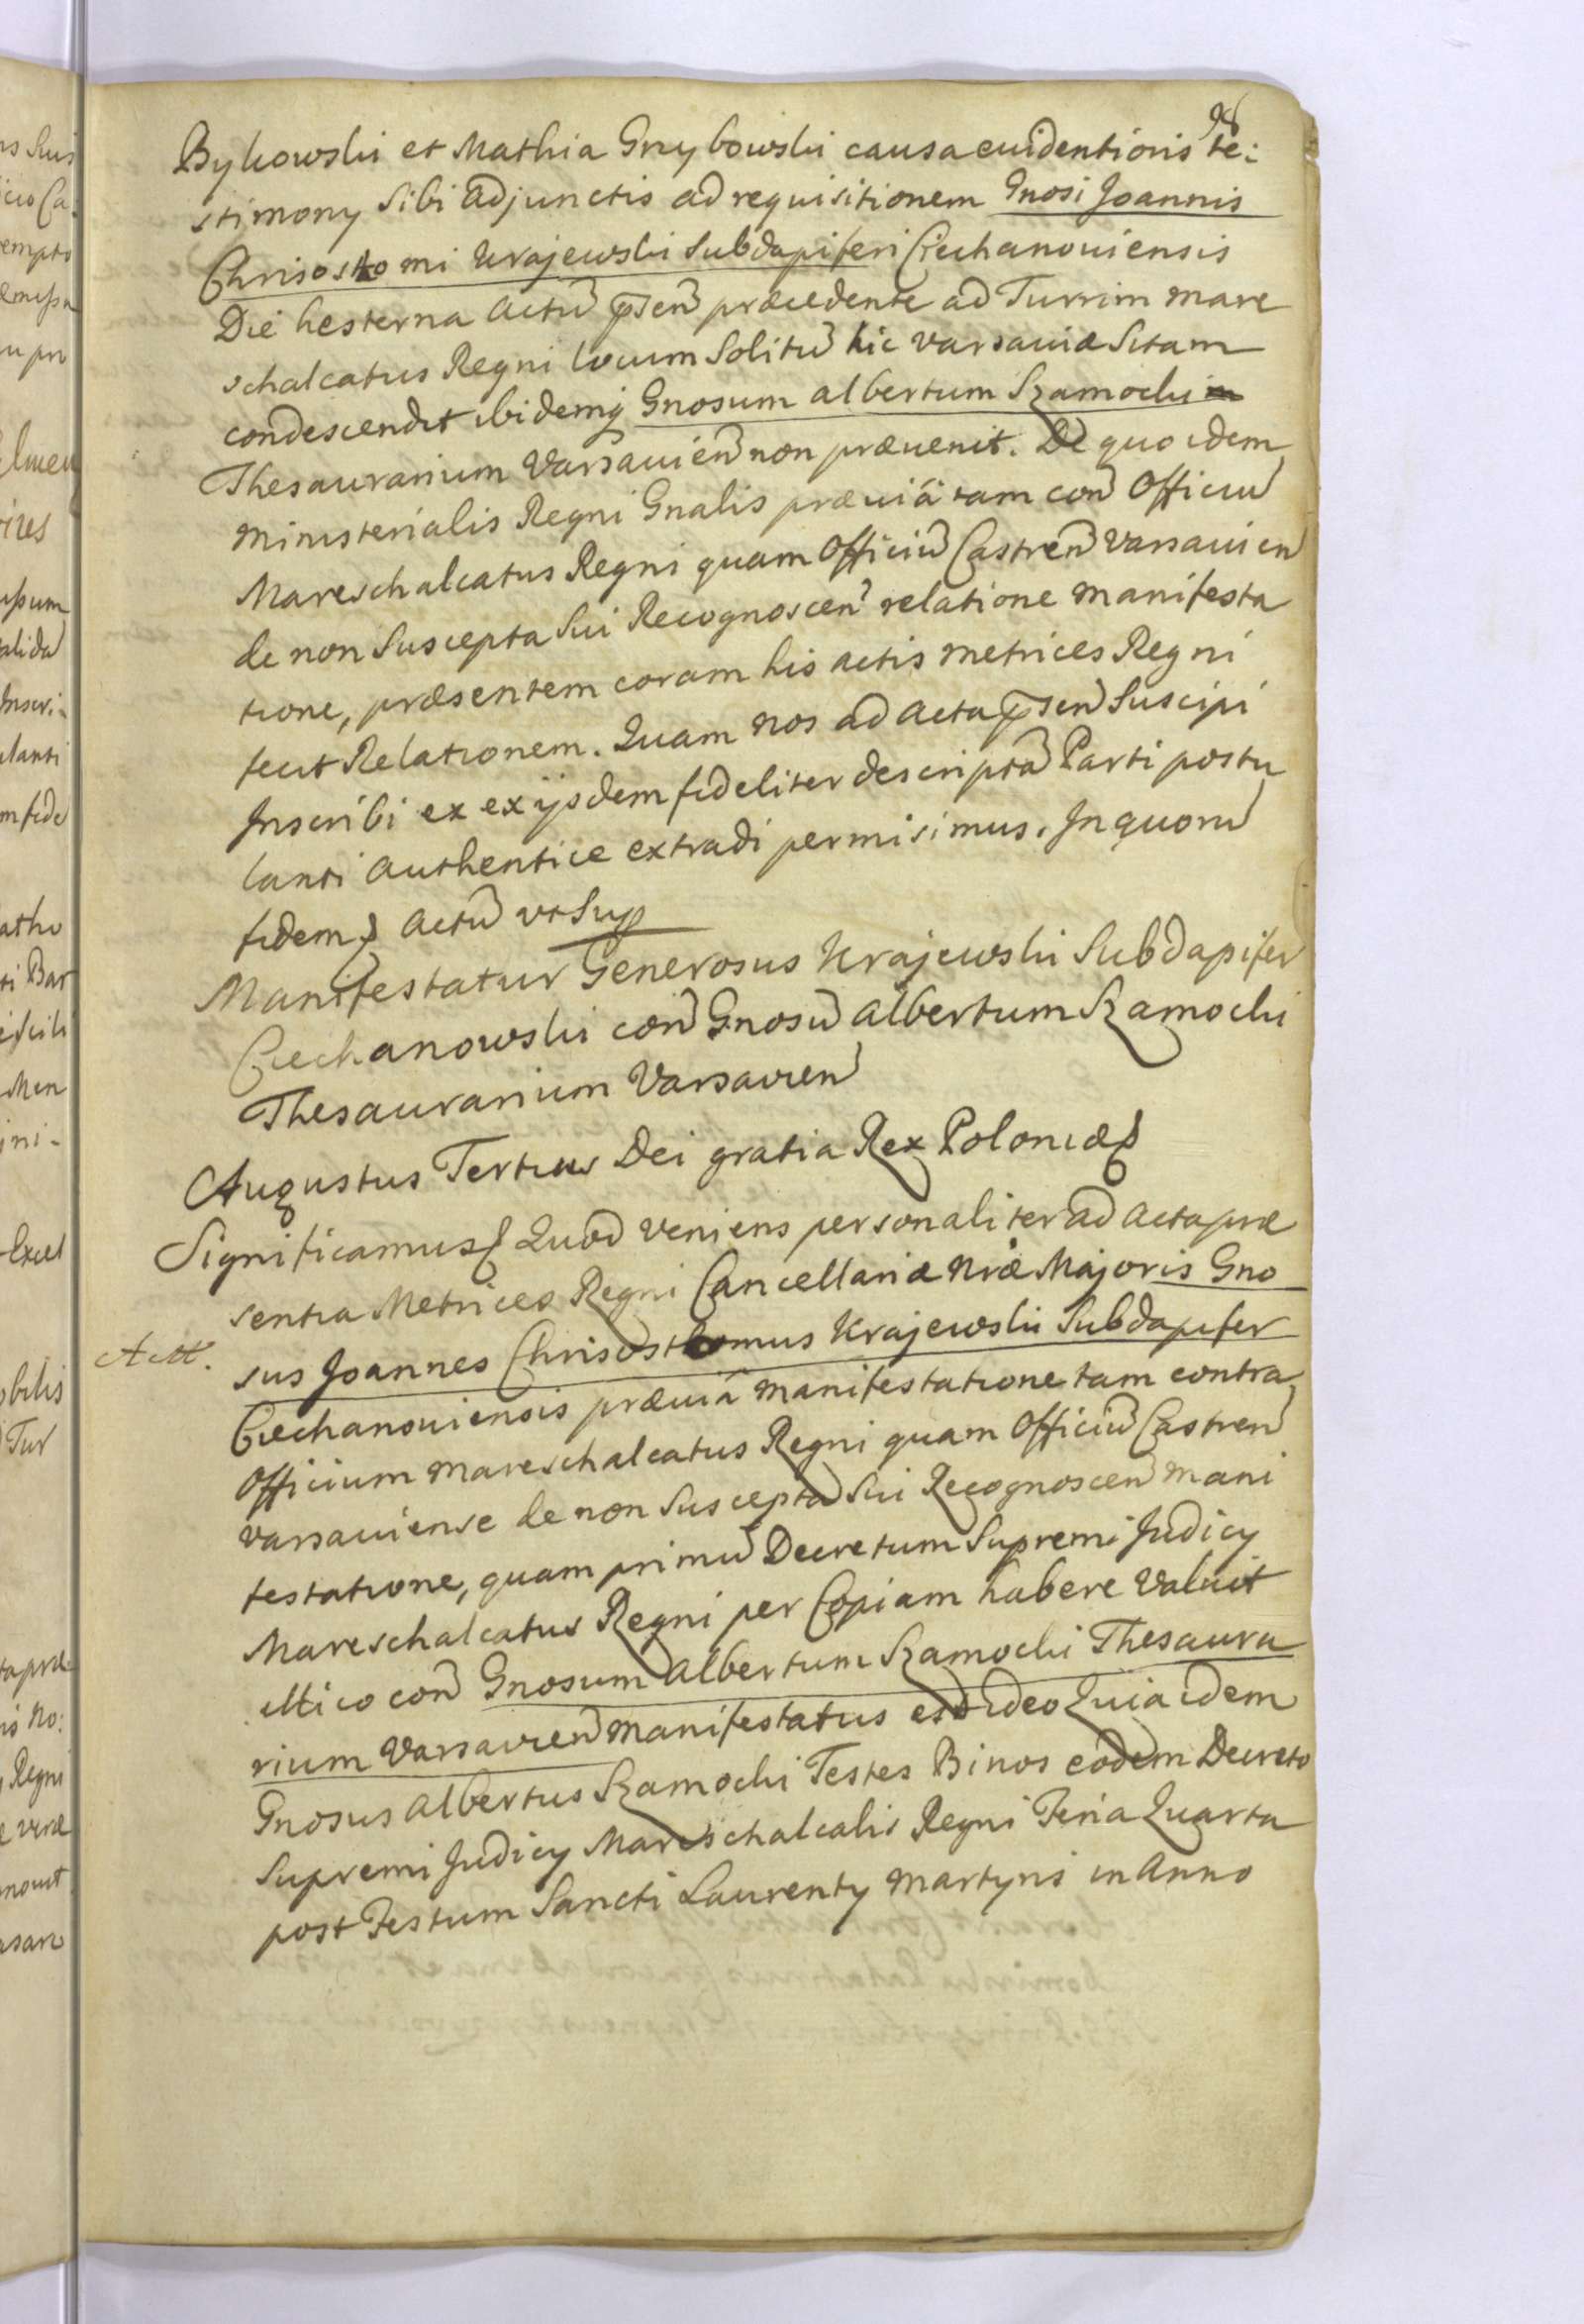 98
Bykowski et Mathia Grzybowski causa euidentioris te:
stimony Sibi adjunctis ad requisitionem Gnosi Joannis
Chrisostomi Krajewski Subdapiferi Ciechanouiensis
Die hesterna actũ p̃sen̄ præcedente ad Turrim mare
schalcatus Regni locum Solitũ hic Varsauiæ Sitam
condescendit ibidemq̃ Gnosum albertum Szamocki
Thesaurarium Varsauien̄ non præuenit. De quo idem
Ministerialis Regni Gnalis præuiâ tam con̄ Officiũ
Mareschalcatus Regni quam Officiũ Castren̄ Varsauien̄
de non Suscepta Sui Recognoscen̄ relatione manifesta
tione, præsentem coram his actis metrices Regni
fecit Relationem. Quam nos ad acta p̃sen̄ Suscipi
Inscribi ex exijsdem fideliter descriptã Parti postu
lanti authentice extradi permisimus. In quorũ
fidem actũ vt Sup
Manifestatur Generosus Krajewski Subdapifer
Ciechanowski con̄ Gnosũ albertum Szamocki
Thesaurarium Varsauien̄
Augustus Tertius Dei gratia Rex Poloniæ
Significamus Quod veniens personaliter ad acta præ
sentia Metrices Regni Cancellariæ Nræ Majoris Gno
sus Joannes Chrisosthomus Krajewski Subdapifer
Ciechanouiensis præuiâ manifestatione tam contra
Officium mareschalcatus Regni quam Officiũ Castren̄
varsauiense de non Suscepta Sui Recognoscen̄ mani
festatione, quam primũ Decretum Supremi Judicy
Mareschalcatus Regni per Copiam habere Valuit
illico con̄ Gnosum albertum Szamocki Thesaura
rium Varsauien̄ manifestatus est ideo Quia idem
Gnosus albertus Szamocki Testes Binos eodem Decreto
Supremi Judicy Mareschalcalis Regni Feria Quarta
post Festum Sancti Laurenty martyris in anno